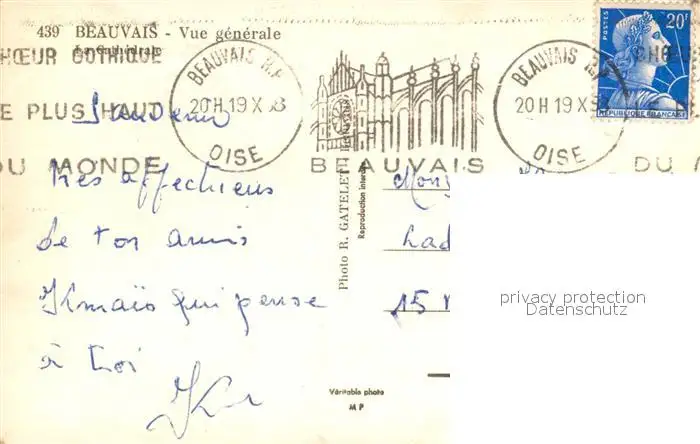 439 BEAUVAIS - Vue générale
La Cathédrale
CHŒUR GOTHIQUE
LE PLUS HAUT
DU MONDE
BEAUVAIS R.P.
20H 19 X
OISE
BEAUVAIS
BEAUVAIS R.P.
20H 19 X
OISE
POSTES 20F
REPUBLIQUE FRANÇAISE
CHŒ
DU
très affectueux
de ton amis
qui pense
à toi
Photo R. GATELET
Reproduction interdite
Lad
15
Véritable photo
M P
privacy protection
Datenschutz